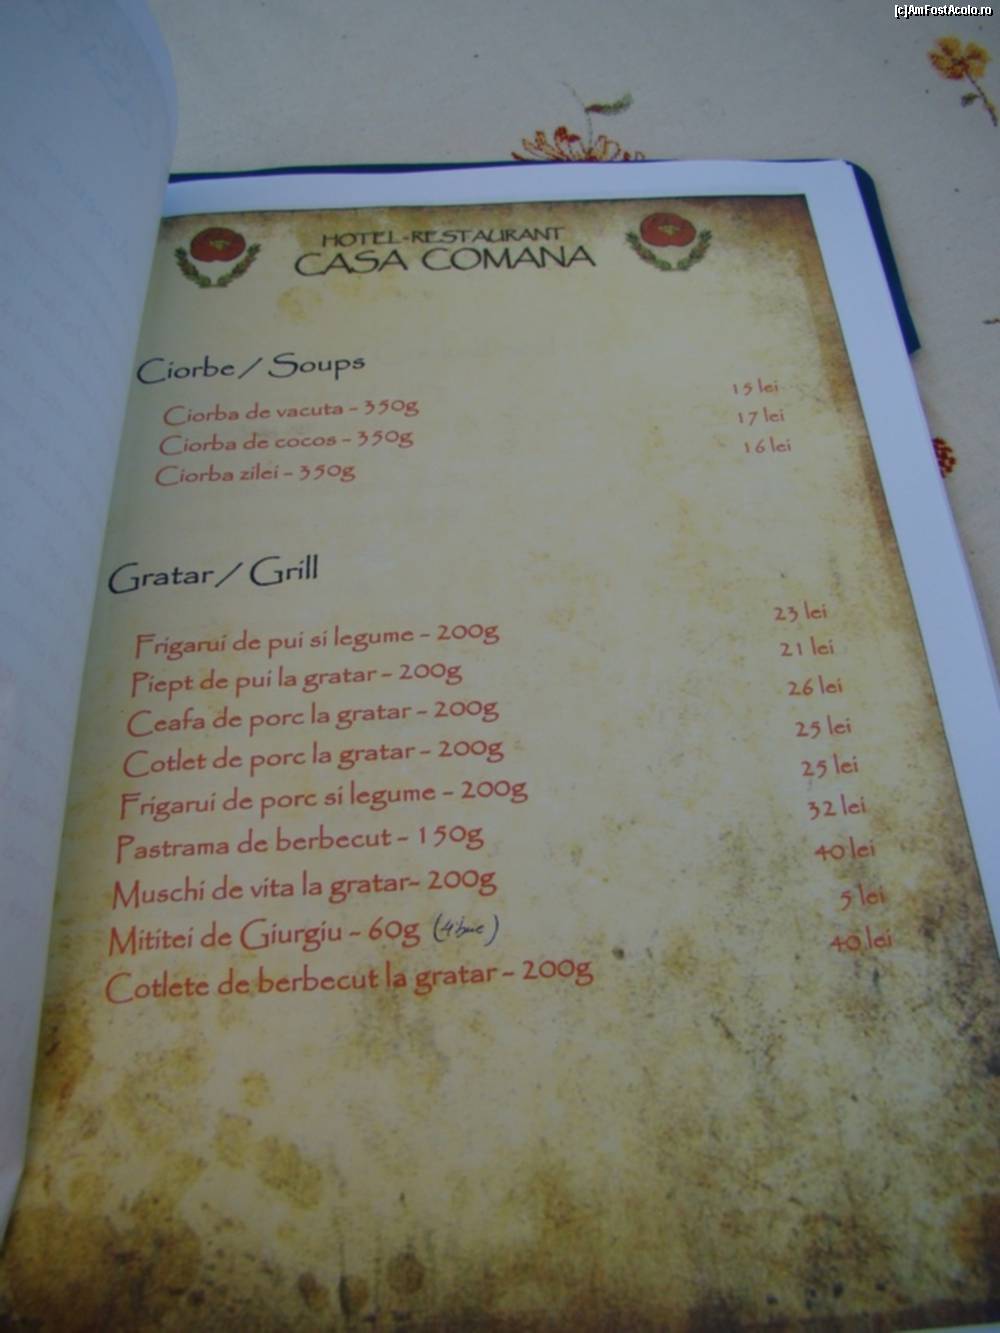 [c]AmFostAcolo.ro
HOTEL-RESTAURANT
CASA COMANA
Ciorbe / Soups
Ciorba de vacuta - 350g 15 lei
Ciorba de cocos - 350g 17 lei
Ciorba zilei - 350g 16 lei
Gratar / Grill
Frigarui de pui si legume - 200g 23 lei
Piept de pui la gratar - 200g 21 lei
Ceafa de porc la gratar - 200g 26 lei
Cotlet de porc la gratar - 200g 25 lei
Frigarui de porc si legume - 200g 25 lei
Pastrama de berbecut - 150g 32 lei
Muschi de vita la gratar- 200g 40 lei
Mititei de Giurgiu - 60g (4 buc) 5 lei
Cotlete de berbecut la gratar - 200g 40 lei